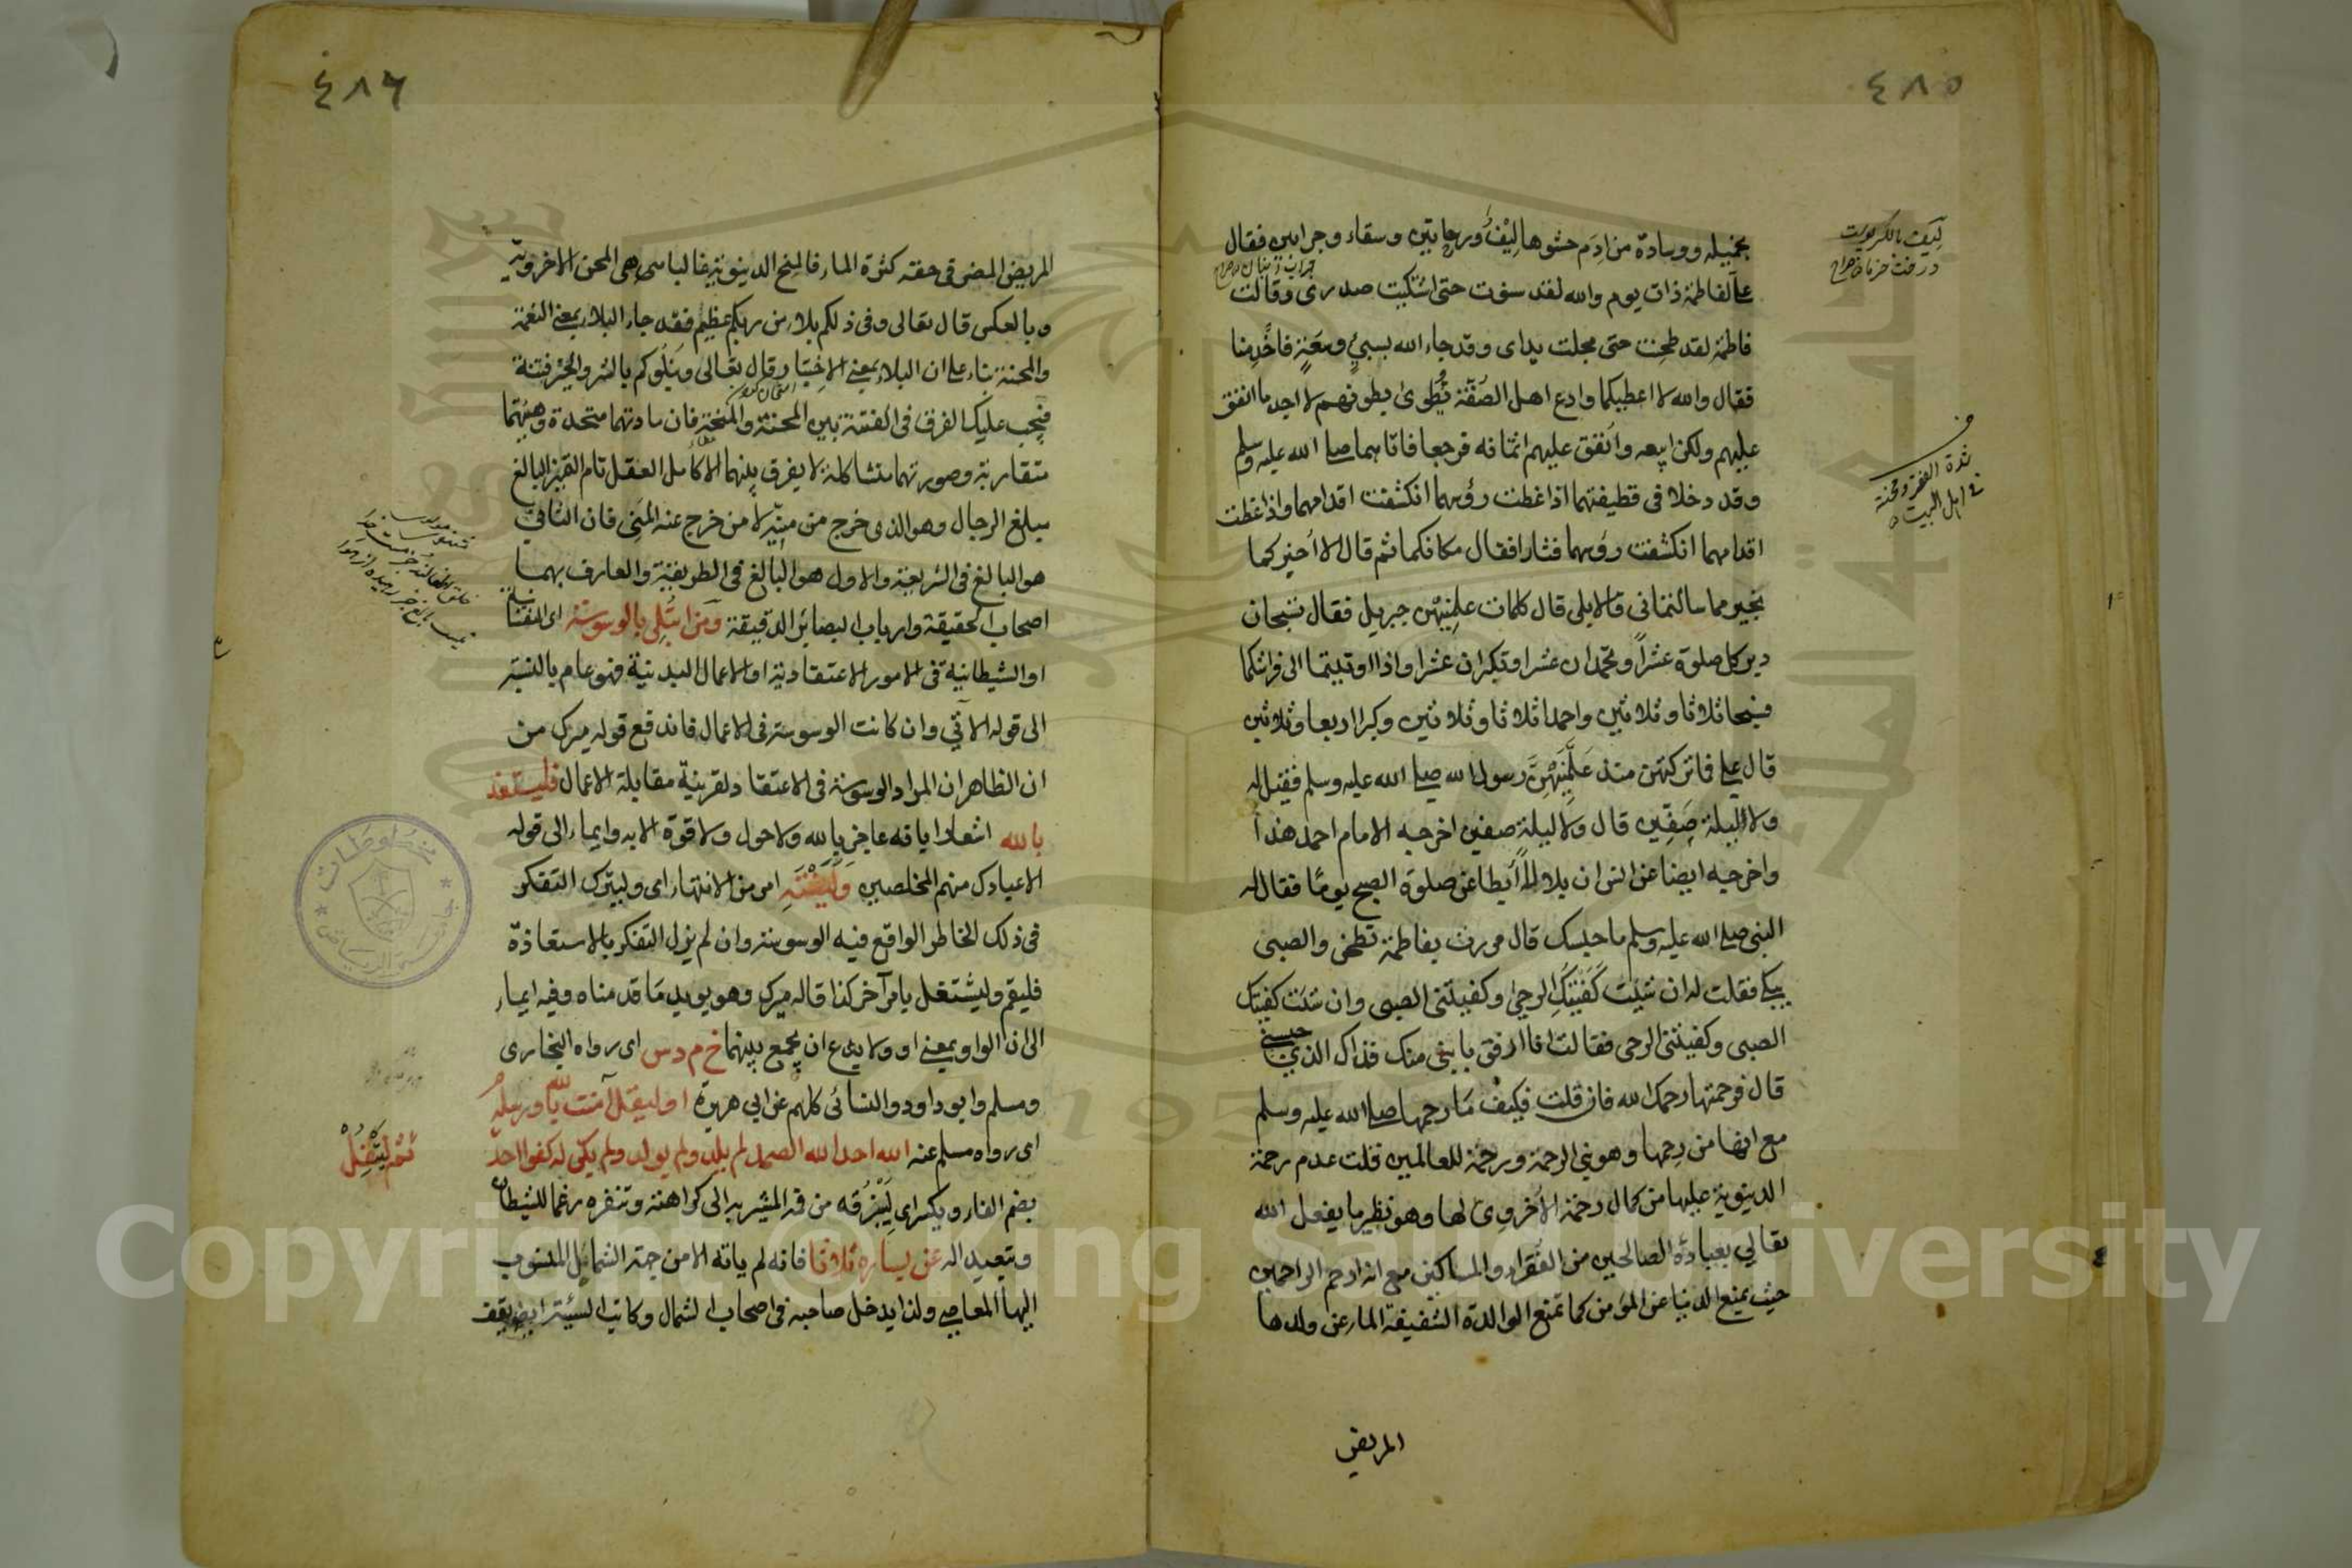 ٤٨٥
بخميله ووسادة من ادم حشوها ليف ورحايين وسقاء وجرابين فقال
على لفاطمة ذات يوم والله لقد سنوت حتى اشتكيت صدرى وقالت
فاطمة لقد طحنت حتى مجلت يداى وقد جاء الله بسبي وسعة فاخدمنا
فقال والله لا اعطيكما وادع اهل الصفة تطوى بطونهم لا اجد ما انفق
عليهم ولكن ابيعه وانفق عليهم اثمانه فرجعا فاتاهما صلى الله عليه وسلم
وقد دخلا فى قطيفتهما اذا غطت رؤسهما انكشفت اقدامهما واذا غطت
اقدامهما انكشفت رؤسهما فثارا فقال مكانكما ثم قال الا اخبركما
بخير مما سالتمانى قالا بلى قال كلمات علمنيهن جبريل فقال تسبحان
دبر كل صلوة عشرا وتحمدان عشرا وتكبران عشرا واذا اويتما الى فراشكما
فسبحا ثلاثا وثلاثين واحمدا ثلاثا وثلاثين وكبرا اربعا وثلاثين
قال على فاتركتهن منذ علمنيهن رسول الله صلى الله عليه وسلم فقيل له
ولا ليلة صفين قال ولا ليلة صفين اخرجه الامام احمد هذا
واخرجه ايضا عن انس ان بلالا أبطا عن صلوة الصبح يوما فقال له
النبى صلى الله عليه وسلم ما حبسك قال مررت بفاطمة تطحن والصبى
يبكى فقلت لها ان شئت كفيتك الرحى وكفيتنى الصبى وان شئت كفيتك
الصبى وكفيتنى الرحى فقالت انا ارفق بابنى منك فذاك الذى حبسنى
قال فرحمتها رحمك الله فان قلت فكيف ما رحمها صلى الله عليه وسلم
مع انها من رحمها وهو نبى الرحمة ورحمة للعالمين قلت عدم رحمة
الدينوية عليها من كمال رحمة الاخروى لها وهو نظير ما يفعل الله
تعالى بعبادة الصالحين من الفقراء والمساكين مع انه ارحم الراحمين
حيث يمنع الدنيا عن المؤمن كما تمنع الوالدة الشفيقة الماء عن ولدها
المريض
٤٨٦
المريض المضر فى حقه كثرة الماء فالمنح الدينوية فالباسى هى المحن الاخروية
وبالعكس قال تعالى وفى ذلكم بلاء من ربكم عظيم فقد جاء البلاء بمعنى النعمة
والمحنة بناء على ان البلاء بمعنى الاختبار وقال تعالى ونبلوكم بالشر والخير فتنة
فيجب عليك الفرق فى الفتنة بين المحنة والمنحة فان مادتهما متحدة وهيئتهما
متقاربة وصورتهما متشاكلة لا يفرق بينهما الا كامل العقل تام التميز البالغ
مبلغ الرجال وهو الذى خرج من منيه لا من خرج عنه المنى فان الثانى
هو البالغ فى الشريعة والاول هو البالغ فى الطريقة والعارف بهما
اصحاب الحقيقة وارباب البصائر الدقيقة ومن ابتلى بالوسوسة اى النفسانية
او الشيطانية فى الامور الاعتقادية او الاعمال البدنية فهو عام بالنسبة
الى قوله الآتى وان كانت الوسوسة فى الاعمال فاندفع قول ميرك من
ان الظاهر ان المراد الوسوسة فى الاعتقاد لقرينة مقابلة الاعمال فليستعذ
بالله اشعارا بانه عاجز بالله ولا حول ولا قوة الا به وايماء الى قوله
الا عبادك منهم المخلصين ولينته امر من الانتهاء اى وليترك التفكر
فى ذلك الخاطر الواقع فيه الوسوسة وان لم يزل التفكر بالاستعاذة
فليقم وليشتغل بامر آخر كذا قاله ميرك وهو يويد ما قدمناه وفيه ايماء
الى ان الواو بمعنى او ولا يدع ان يجمع بينهما خ م د س اى رواه البخارى
ومسلم وابو داود والنسائى كلهم عن ابى هريرة او ليقل آمنت بالله ورسله م
اى رواه مسلم عنه الله احد الله الصمد لم يلد ولم يولد ولم يكن له كفوا احد
ثم ليتفل
بضم الفاء ويكسر اى ليبزقه من فه المشير به الى كراهته وتنفره رغما للشيطان
وتبعيدا له عن يساره ثلاثا فانه لم ياته الا من جهة الشمائل المنسوب
اليها المعاصى ولذا يدخل صاحبه فى اصحاب الشمال وكاتب السيئة ايضا يقف
مخطوطات
جامعة الرياض
جامعة الملك سعود
Copyright © King Saud University